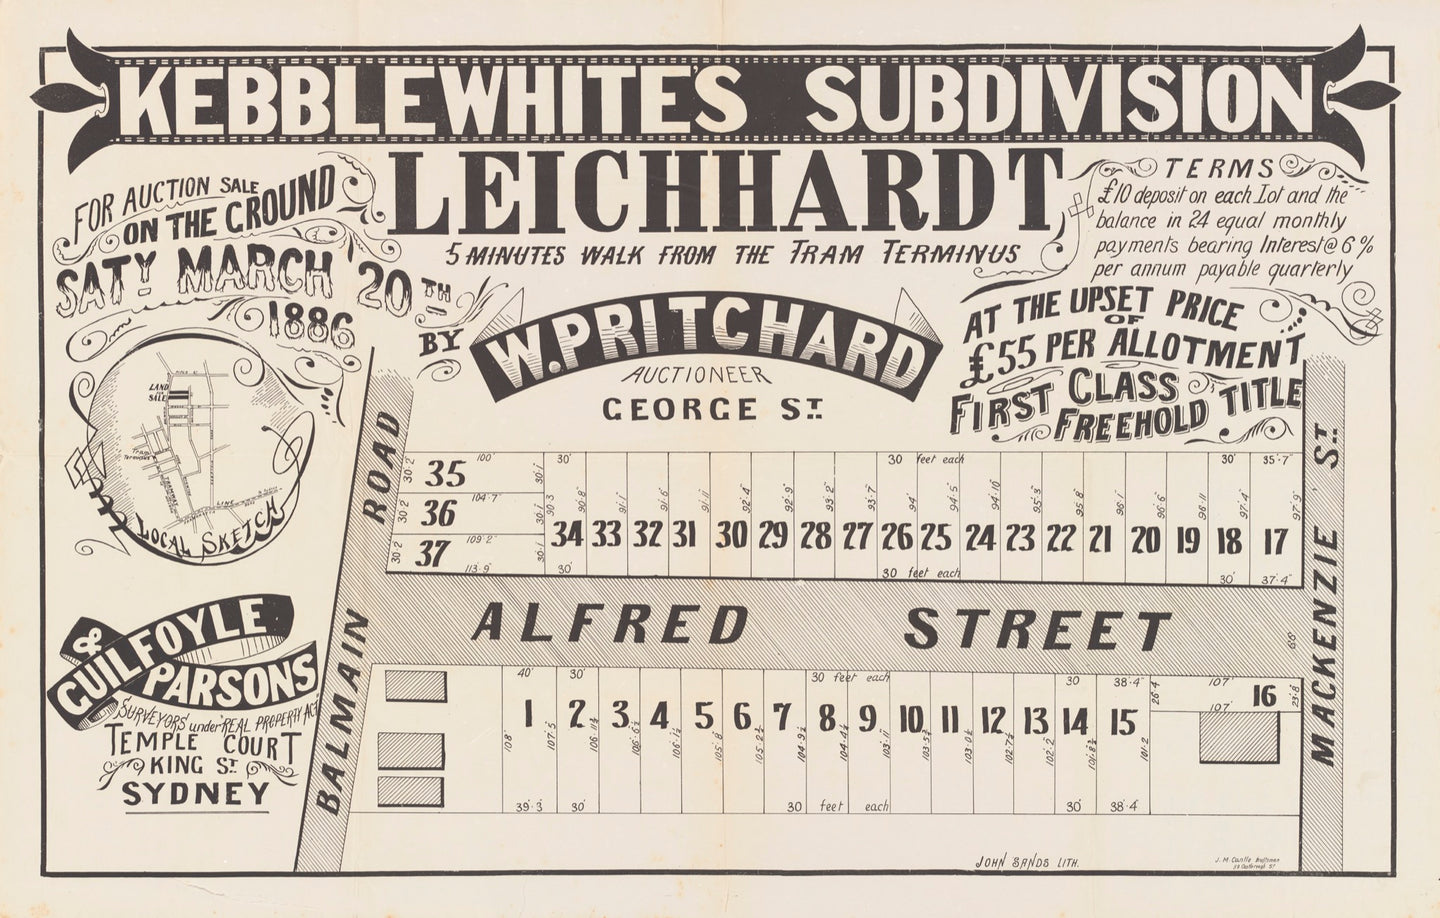 KEBBLEWHITE'S SUBDIVISION
LEICHHARDT
5 MINUTES WALK FROM THE TRAM TERMINUS
FOR AUCTION SALE
ON THE GROUND
SATY MARCH 20TH
1886
BY
W. PRITCHARD
AUCTIONEER
GEORGE ST.
TERMS
£10 deposit on each Lot and the
balance in 24 equal monthly
payments bearing Interest @ 6%
per annum payable quarterly
AT THE UPSET PRICE
OF
£55 PER ALLOTMENT
FIRST CLASS
FREEHOLD TITLE
LAND
SALE
Tram
Terminus
LINE
LOCAL SKETCH
GUILFOYLE
& PARSONS
SURVEYORS under REAL PROPERTY ACT
TEMPLE COURT
KING ST.
SYDNEY
BALMAIN ROAD
MACKENZIE ST.
30·2 35 100' 30·1
30·2 36 104·7" 30·1
30·2 37 109·2" 30·1
113·9"
30' 30 feet each 30' 35'·7"
90·3 90'·8" 91·1 91·6" 91·11 92'·4" 92'·9" 93'·2" 93'·7" 94' 94'·5" 94'·10" 95'·3" 95·8 96·1" 96·6" 96·11 97'·4" 97'·9"
34 33 32 31 30 29 28 27 26 25 24 23 22 21 20 19 18 17
30' 30 feet each 30' 37·4"
ALFRED STREET
66'
40' 30' 30 feet each 30 38·4" 26·4 107' 23·8
1 2 3 4 5 6 7 8 9 10 11 12 13 14 15 16
107'
108' 107·5 105·8 103·11 102·2 101·2
39·3 30' 30 feet each 30' 38·4'
JOHN SANDS LITH.